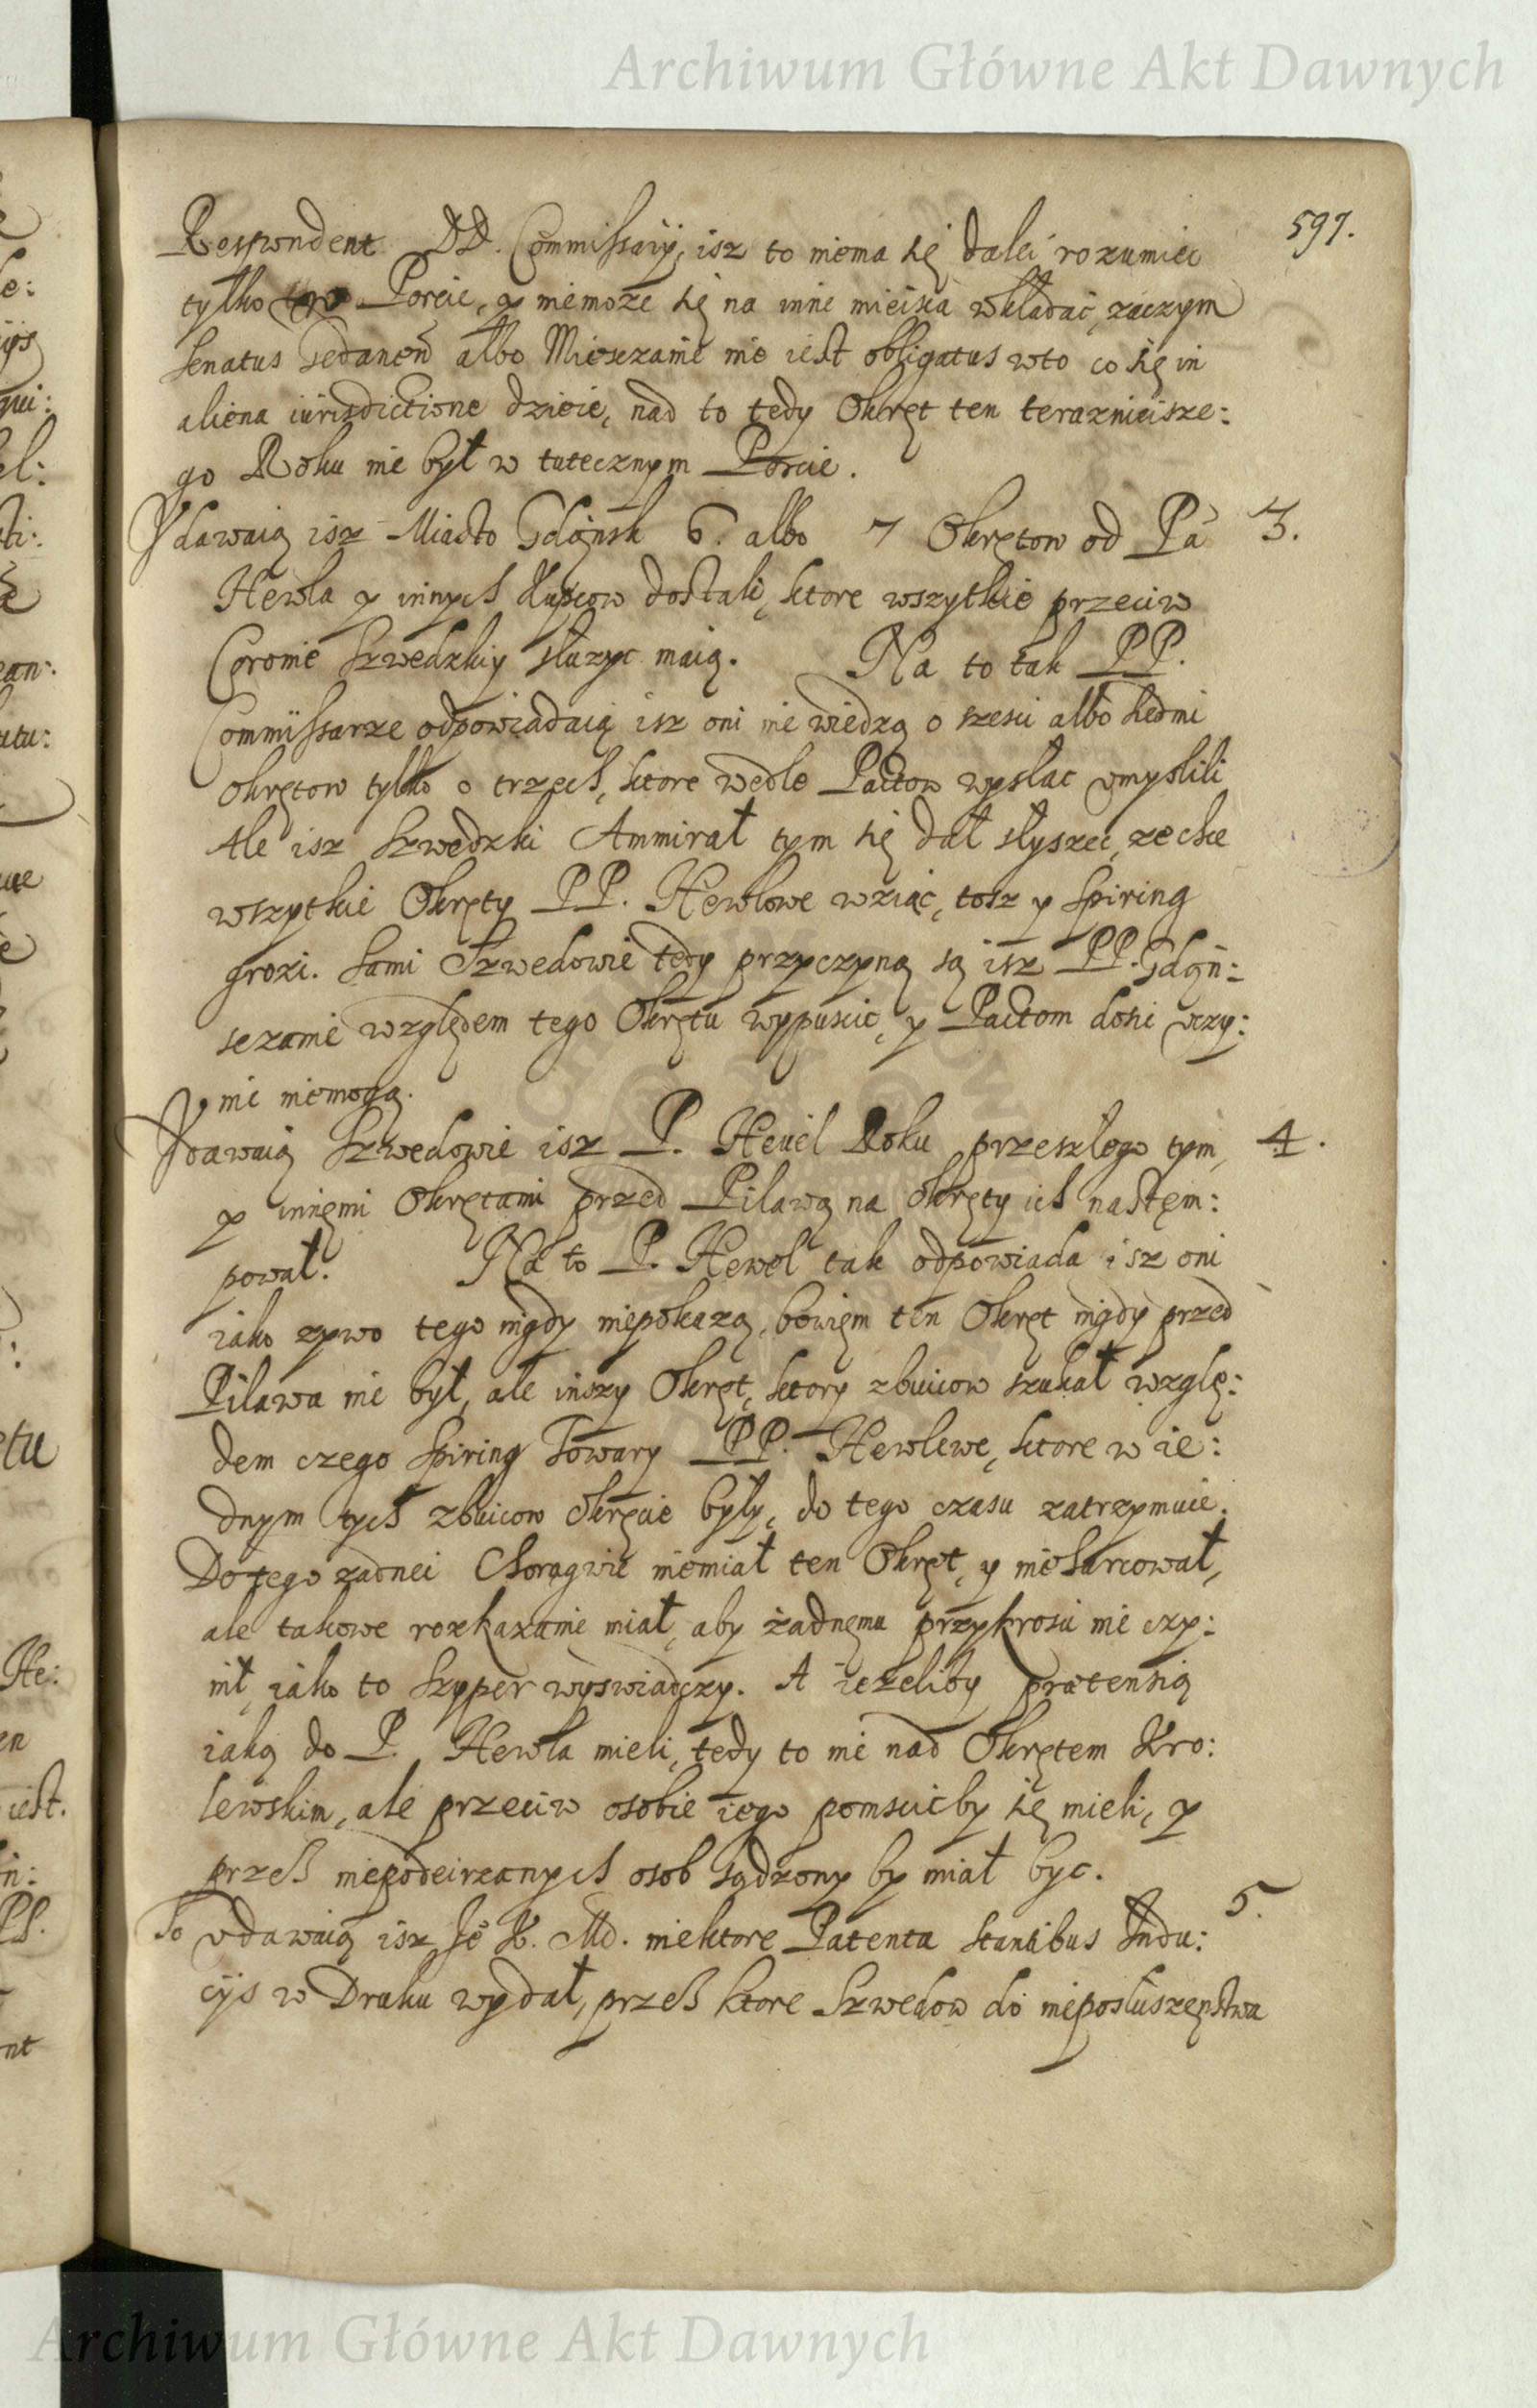 Archiwum Główne Akt Dawnych
597.
Respondent DD. Commissarij, isz to niema się daleí rozumiec
tylko w Porcie, y niemoze się na inne mieisca wkładac, zaczym
Senatus Gedanen albo Miesczanie nie iest obligatus wto co się in
aliena iurisdictione dzieie, nad to tedy Okręt ten teraznieisze:
go Roku nie był w tutecznym Porcie.
Vdawaią isz Miasto Gdąnsk 6. albo 7 Okrętow od Pa 3.
Hewla y innych Kupcow dostali, ktore wszytkie przeciw
Coronie Szwedzkiy słuzyc maią. Na to tak PP.
Commissarze odpowiadaią isz oni nie wiedzą o szesci albo siedmi
okrętow tylko o trzech, ktore wedle Pactow wysłac vmyslili
Ale isz Szwedzki Ammirał tym się dał słyszec, ze chce
wszytkie Okręty PP. Hewlowe wziąc, tosz y Spiring
grozi. Sami Szwedowie tedy przyczyną są isz PP. Gdąn:
sczanie względem tego Okrętu wypuscic, y Pactom dosic vczy:
nic niemogą.
Vdawaią Szwedowie isz P. Heuel Roku przeszłego tym, 4.
y innęmi Okrętami przed Pilawą na Okręty ich nastęm:
pował. Na to P. Hewel tak odpowiada isz oni
iako zywo tego nigdy niepokazą, bowięm ten Okręt nigdy przed
Pilawa nie był, ale inszy Okręt, ktory zbuicow szukał wzglę:
dem czego Spiring Towary PP. Hewlewe, ktore w ie:
dnym tych zbuicow okręcie były, do tego czasu zatrzymuie.
Do tego zadnei Chorągwie niemiał ten Okręt, y nieharcował,
ale takowe rozkazanie miał, aby żadnęmu przykrosci nie czy:
nił, iako to Szyper wyswiadczy. A iezeliby prætensią
iaką do P. Hewla mieli, tedy to nie nad Okrętem Kro:
lewskim, ale przeciw osobie iego pomscicby się mieli, y
przesz niepodeirzanych osob sądzony by miał byc.
To vdawaią isz Je K. Md. niektore Patenta stantibus Indu: 5.
cijs w Druku wydał, przesz ktore Szwedow do nieposłuszęnstwa
Archiwum Główne Akt Dawnych